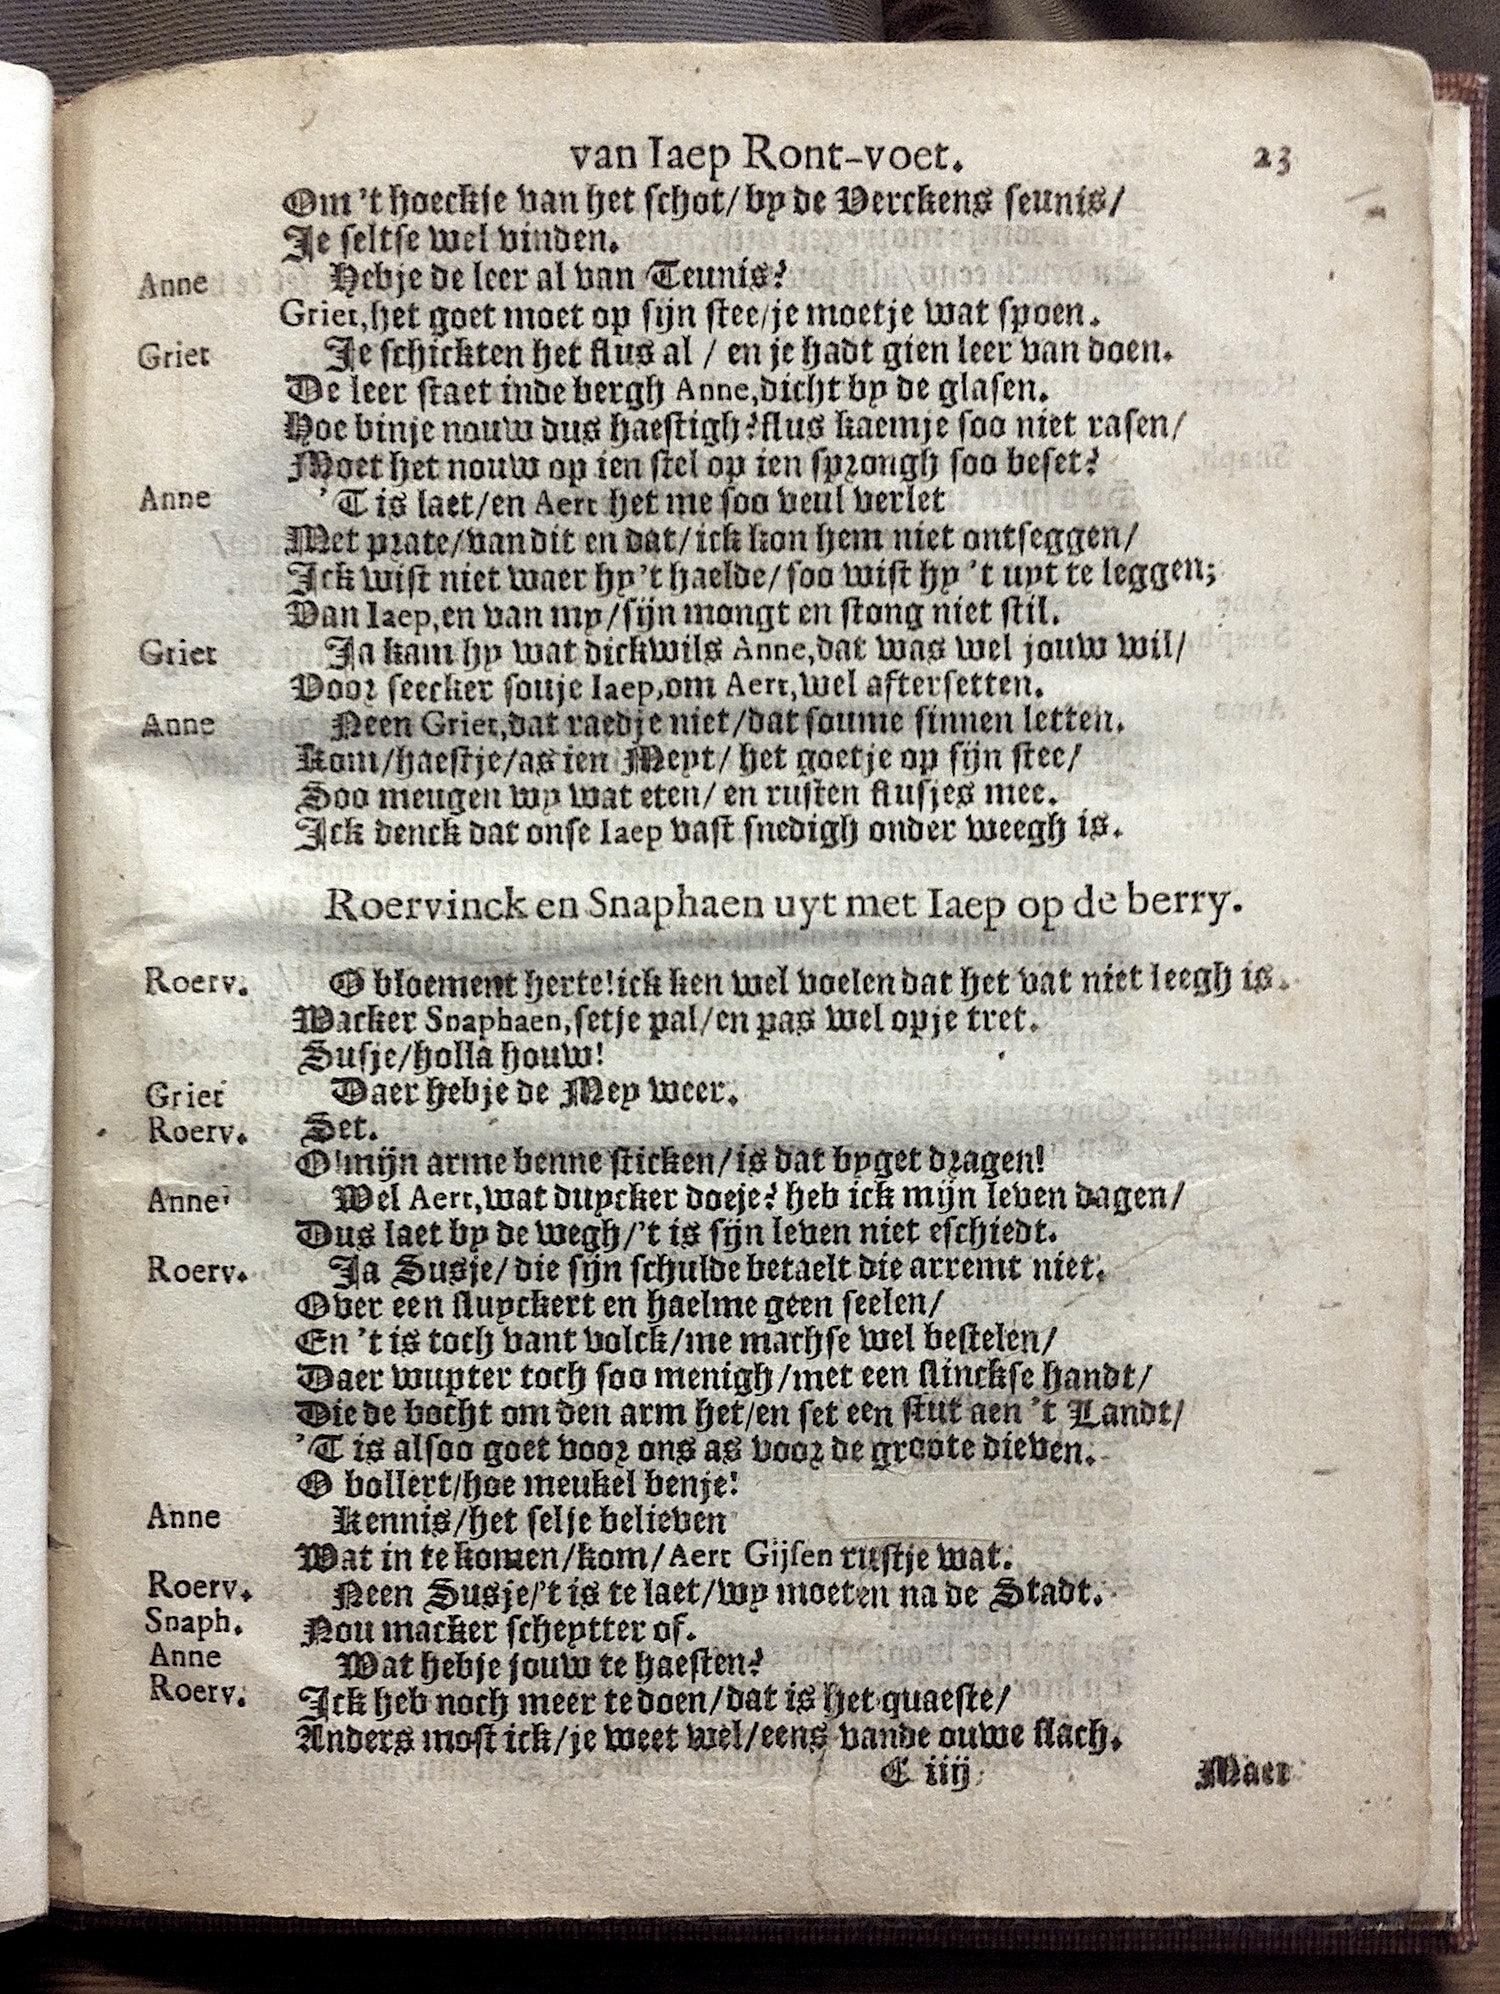 van Iaep Ront-voet. 23
Om 't hoeckje van het schot/ by de Verckens seunis/
Je seltse wel vinden.
Anne Hebje de leer al van Teunis?
Griet, het goet moet op sijn stee/je moetje wat spoen.
Griet Je schickten het flus al / en je hadt gien leer van doen.
De leer staet inde bergh Anne, dicht by de glasen.
Hoe binje nouw dus haestigh? flus kaemje soo niet rasen/
Moet het nouw op ien stel op ien sprongh soo beset?
Anne 'T is laet/en Aert het me soo veul verlet
Met prate/van dit en dat/ick kon hem niet ontseggen/
Ick wist niet waer hy 't haelde/ soo wist hy 't uyt te leggen;
Van Iaep, en van my/sijn mongt en stong niet stil.
Griet Ja kam hy wat dickwils Anne, dat was wel jouw wil/
Voor seecker souje Iaep, om Aert, wel aftersetten.
Anne Neen Griet, dat raedje niet/dat soume sinnen letten.
Kom/haestje/as ien Meyt/ het goetje op sijn stee/
Soo meugen wy wat eten/ en rusten flusjes mee.
Ick denck dat onse Iaep vast snedigh onder weegh is.
Roervinck en Snaphaen uyt met Iaep op de berry.
Roerv. O bloement herte! ick ken wel voelen dat het vat niet leegh is.
Wacker Snaphaen, setje pal/en pas wel opje tret.
Susje/holla houw!
Griet Daer hebje de Mey weer.
Roerv. Set.
O! mijn arme benne sticken/is dat byget dragen!
Anne Wel Aert, wat duycker doeje? heb ick mijn leven dagen/
Dus laet by de wegh/'t is sijn leven niet eschiedt.
Roerv. Ja Susje/ die sijn schulde betaelt die arremt niet.
Over een sluyckert en haelme geen seelen/
En 't is toch vant volck/me machse wel bestelen/
Daer wupter toch soo menigh/met een slinckse handt/
Die de bocht om den arm het/en set een stut aen 't Landt/
'T is alsoo goet voor ons as voor de groote dieven.
O bollert/hoe meukel benje!
Anne Kennis/het selje believen
Wat in te komen/kom/Aert Gijsen rustje wat.
Roerv. Neen Susje/'t is te laet/wy moeten na de Stadt.
Snaph. Nou macker scheytter of.
Anne Wat hebje jouw te haesten?
Roerv. Ick heb noch meer te doen/dat is het quaeste/
Anders most ick/je weet wel/eens vande ouwe slach.
E iiij Maer